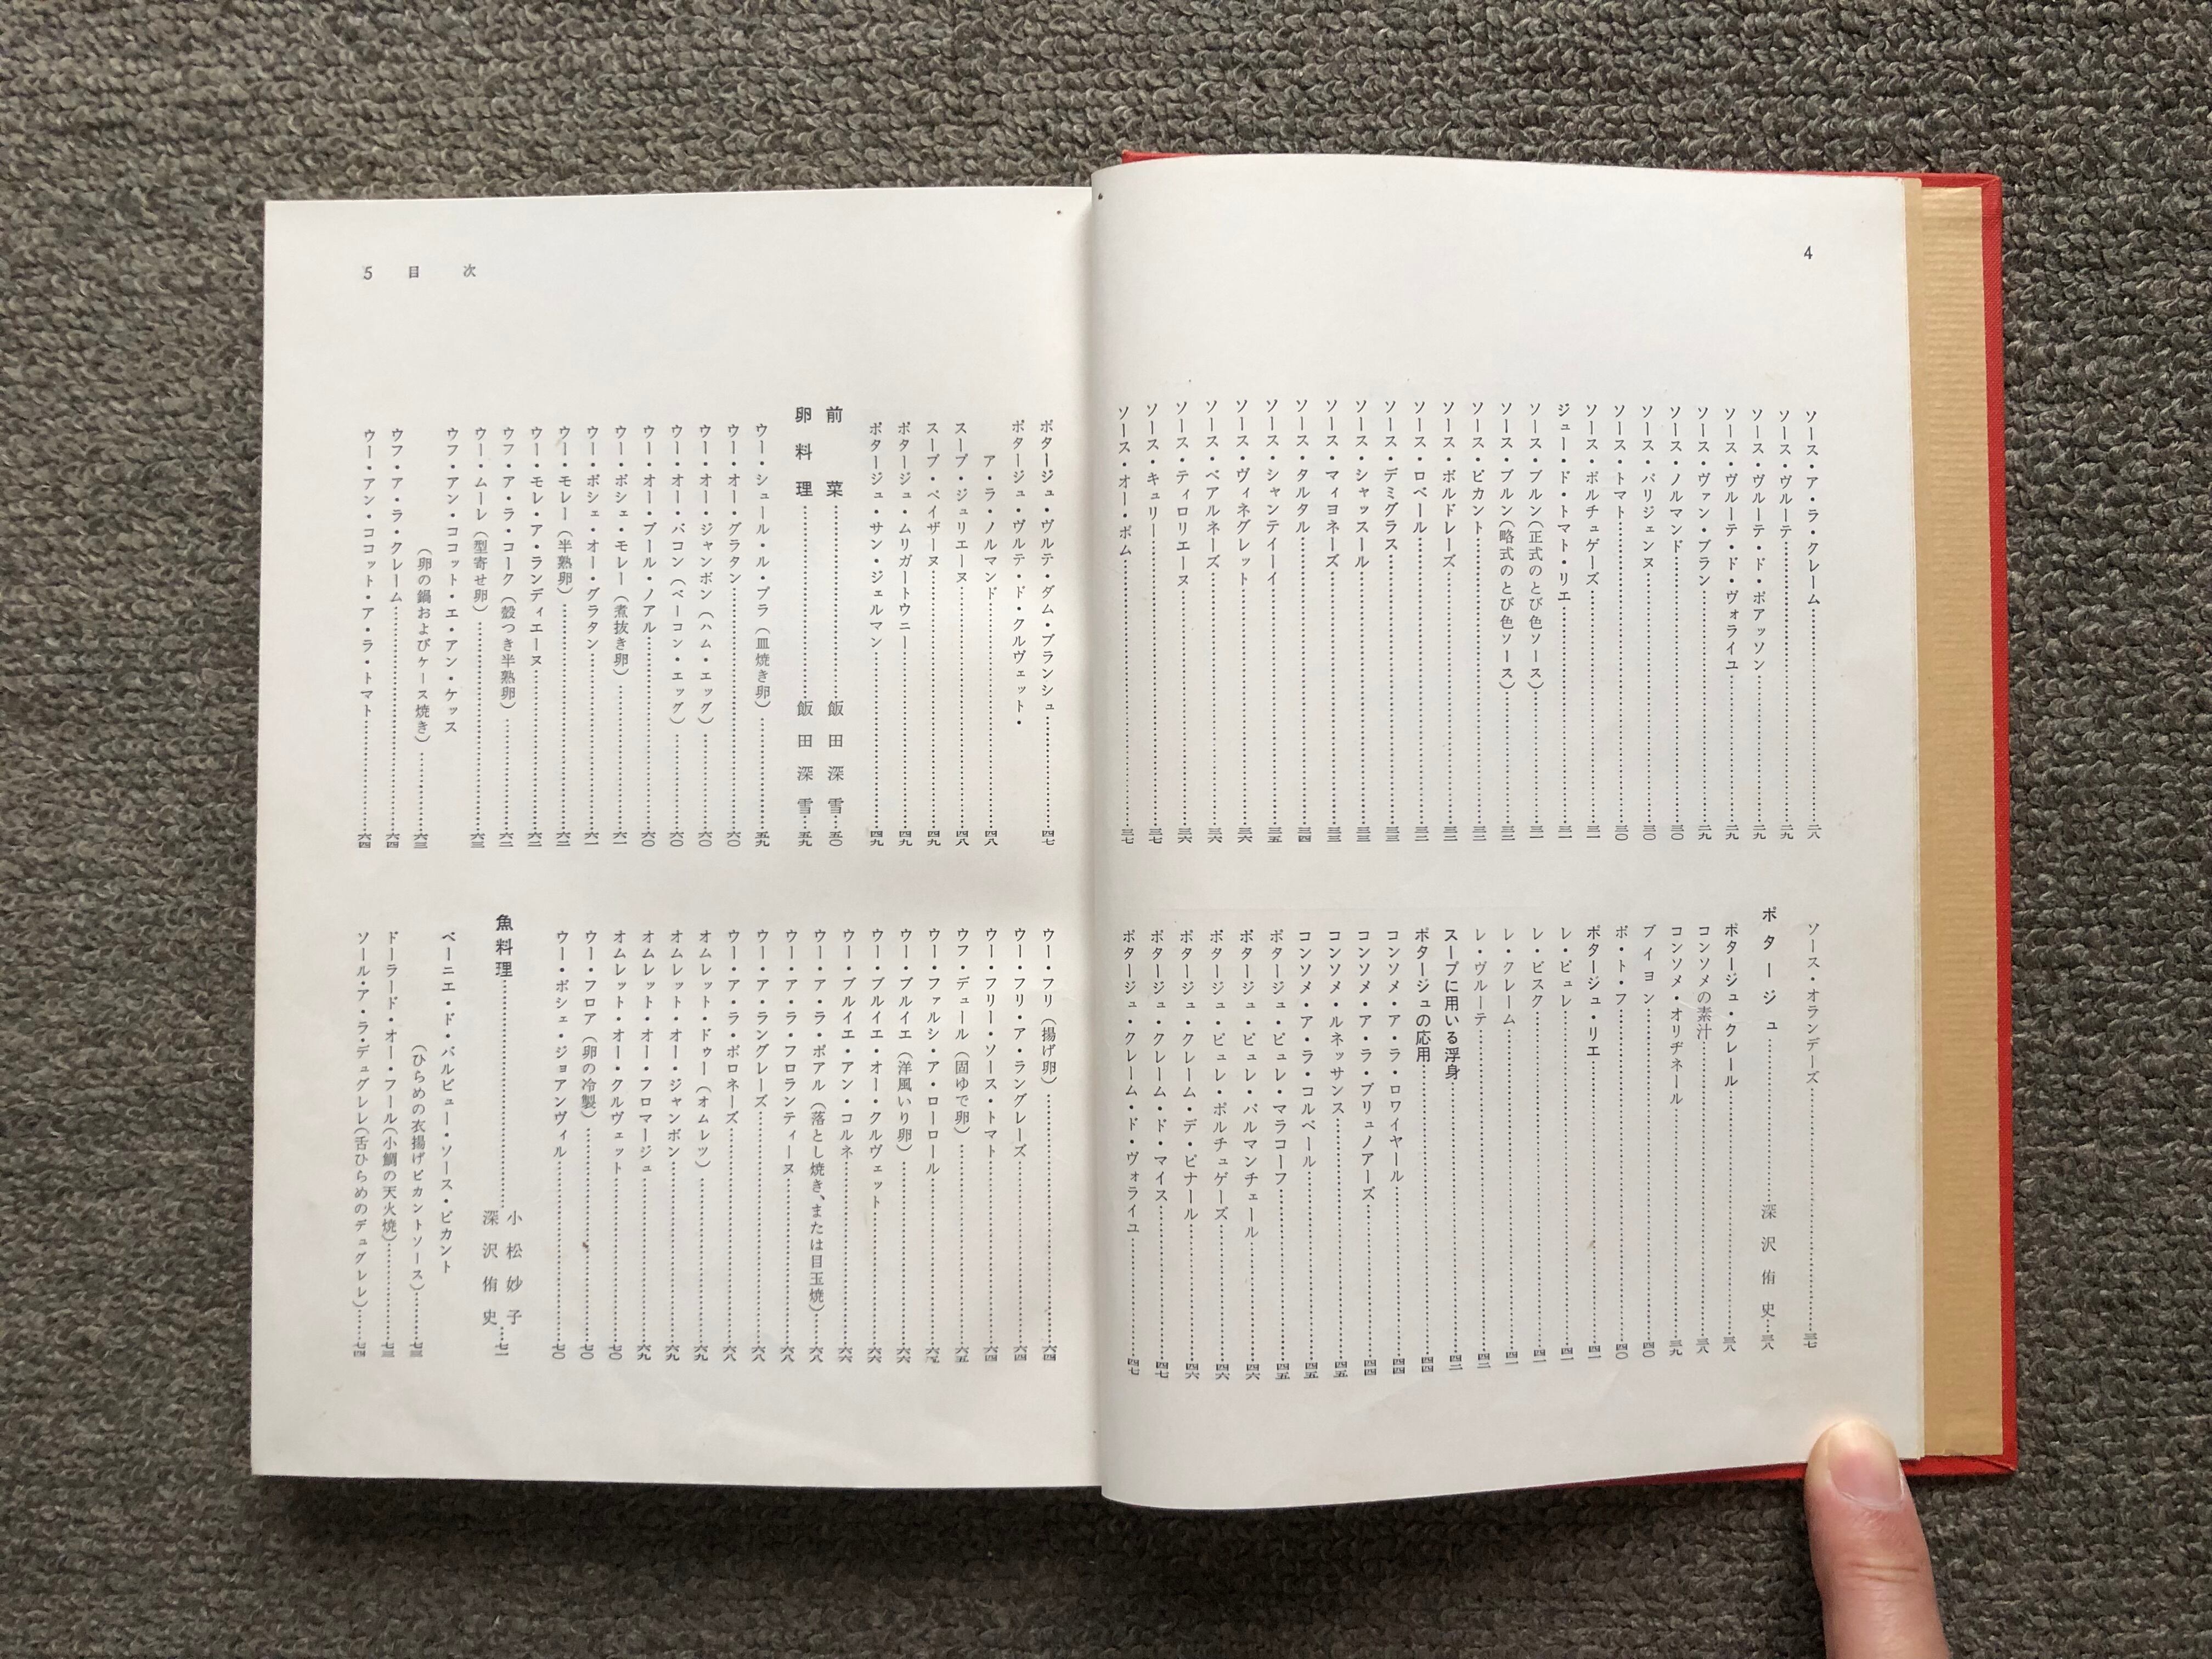 4
ソース・ア・ラ・クレーム……二八
ソース・ヴルーテ……二九
ソース・ヴルーテ・ド・ポアッソン……二九
ソース・ヴルーテ・ド・ヴォライユ……二九
ソース・ヴァン・ブラン……二九
ソース・ノルマンド……三〇
ソース・パリジェンヌ……三〇
ソース・トマト……三〇
ソース・ポルチュゲーズ……三一
ジュー・ド・トマト・リエ……三一
ソース・ブルン(正式のとび色ソース)……三一
ソース・ブルン(略式のとび色ソース)……三二
ソース・ピカント……三二
ソース・ボルドレーズ……三二
ソース・ロベール……三二
ソース・デミグラス……三三
ソース・シャッスール……三三
ソース・マィヨネーズ……三三
ソース・タルタル……三四
ソース・シャンテイーイ……三五
ソース・ヴィネグレット……三六
ソース・ベアルネーズ……三六
ソース・ティロリエーヌ……三六
ソース・キュリー……三七
ソース・オー・ポム……三七
ソース・オランデーズ……三七
ポタージュ……深沢侑史…三八
ポタージュ・クレール……三八
コンソメの素汁……三八
コンソメ・オリヂネール……三九
ブイヨン……四〇
ポ・ト・フ……四〇
ポタージュ・リエ……四一
レ・ピュレ……四一
レ・ビスク……四一
レ・クレーム……四一
レ・ヴルーテ……四二
スープに用いる浮身……四二
ポタージュの応用……四四
コンソメ・ア・ラ・ロワイヤール……四四
コンソメ・ア・ラ・ブリュノアーズ……四四
コンソメ・ルネッサンス……四五
コンソメ・ア・ラ・コルベール……四五
ポタージュ・ピュレ・マラコーフ……四五
ポタージュ・ピュレ・パルマンチェール……四六
ポタージュ・ピュレ・ポルチュゲーズ……四六
ポタージュ・クレーム・デ・ピナール……四六
ポタージュ・クレーム・ド・マイス……四七
ポタージュ・クレーム・ド・ヴォライユ……四七
5 目 次
ポタージュ・ヴルテ・ダム・ブランシュ……四七
ポタージュ・ヴルテ・ド・クルヴェット・
ア・ラ・ノルマンド……四八
スープ・ジュリエーヌ……四八
スープ・ペイザーヌ……四九
ポタージュ・ムリガートウニー……四九
ポタージュ・サン・ジェルマン……四九
前菜……飯田深雪…五〇
卵料理……飯田深雪…五九
ウー・シュール・ル・プラ(皿焼き卵)……五九
ウー・オー・グラタン……六〇
ウー・オー・ジャンボン(ハム・エッグ)……六〇
ウー・オー・バコン(ベーコン・エッグ)……六〇
ウー・オー・ブール・ノアル……六〇
ウー・ポシェ・モレー(煮抜き卵)……六一
ウー・ポシェ・オー・グラタン……六一
ウー・モレー(半熟卵)……六二
ウー・モレ・ア・ランディエーヌ……六二
ウフ・ア・ラ・コーク(殻つき半熟卵)……六二
ウー・ムーレ(型寄せ卵)……六三
ウフ・アン・ココット・エ・アン・ケッス
(卵の鍋およびケース焼き)……六三
ウフ・ア・ラ・クレーム……六四
ウー・アン・ココット・ア・ラ・トマト……六四
ウー・フリ(揚げ卵)……六四
ウー・フリ・ア・ラングレーズ……六四
ウー・フリー・ソース・トマト……六四
ウフ・デュール(固ゆで卵)……六五
ウー・ファルシ・ア・ローロール……六五
ウー・ブルイエ(洋風いり卵)……六六
ウー・ブルイエ・オー・クルヴェット……六六
ウー・ブルイエ・アン・コルネ……六六
ウー・ア・ラ・ポアル(落とし焼き、または目玉焼)……六八
ウー・ア・ラ・フロランティーヌ……六八
ウー・ア・ラングレーズ……六八
ウー・ア・ラ・ポロネーズ……六八
オムレット・ドゥー(オムレツ)……六九
オムレット・オー・ジャンボン……六九
オムレット・オー・フロマージュ……六九
オムレット・オー・クルヴェット……七〇
ウー・フロア(卵の冷製)……七〇
ウー・ポシェ・ジョアンヴィル……七〇
魚料理……小松妙子 深沢侑史…七一
ベーニエ・ド・バルビュー・ソース・ピカント
(ひらめの衣揚げピカントソース)……七三
ドーラード・オー・フール(小鯛の天火焼)……七三
ソール・ア・ラ・デュグレレ(舌ひらめのデュグレレ)……七四